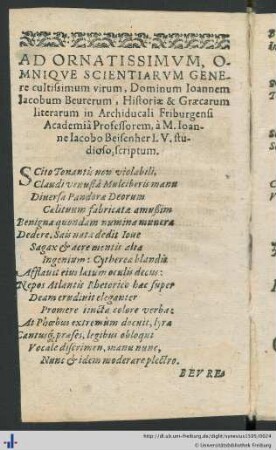 AD ORNATISSIMVM, O-
MNIQVE SCIENTIARVM GENE-
re cultissimum virum, Dominum Ioannem
Iacobum Beurerum, Historiæ & Græcarum
literarum in Archiducali Friburgensi
Academiâ Professorem, à M. Ioan-
ne Iacobo Beisenher I. V. stu-
dioso, scriptum.
SCito Tonantis non violabili,
Claudi venustâ Mulciberis manu
Diversa Pandora Deorum
Cælitum fabricata amussim
Benigna quondam numina munera
Dedere. Sais nata dedit Ioue
Sagax & acre mentis altæ
Ingenium: Cytherea blandæ
Afflauit eius latum oculis decus:
Nepos Atlantis Rhetorico hæc super
Deam erudiuit eleganter
Promere iuncta colore verba:
At Phœbus extremùm docuit, lyræ
Cantusq́; præses, legibus obloqui
Vocale discrimen, manu nunc,
Nunc & idem moderare plectro.
BEVRE
http://dl.ub.uni-freiburg.de/diglit/synesius1595/0024
Universitätsbibliothek Freiburg